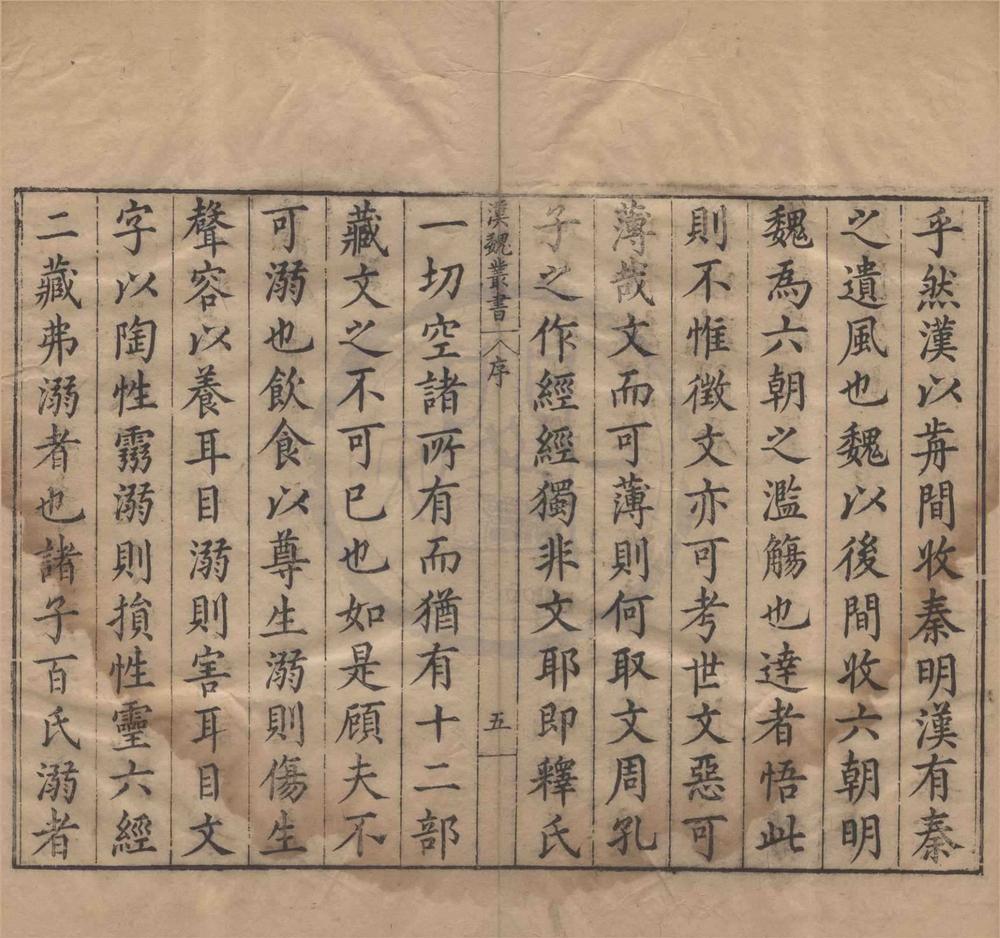 乎然漢以歬間收秦明漢有秦
之遺風也魏以後間收六朝明
魏為六朝之濫觴也達者悟此
則不惟徵文亦可考世文惡可
薄哉文而可薄則何取文周孔
子之作經經獨非文耶即釋氏
漢魏叢書 序 五
一切空諸所有而猶有十二部
藏文之不可已也如是顧夫不
可溺也飲食以尊生溺則傷生
聲容以養耳目溺則害耳目文
字以陶性靈溺則損性靈六經
二藏弗溺者也諸子百氏溺者